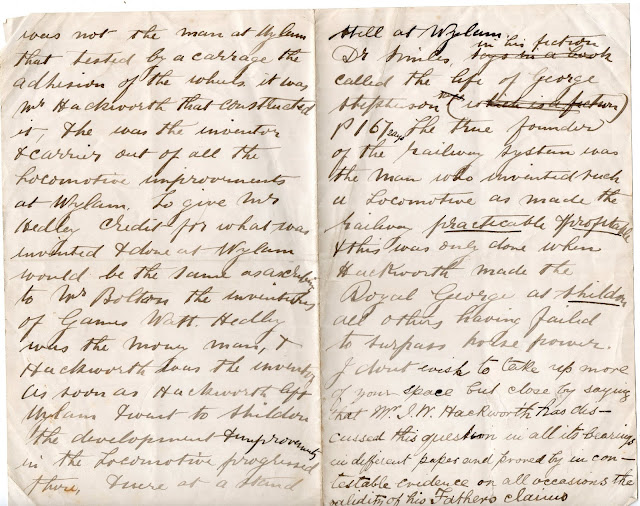 was not the man at Wylam
that tested by a carrage the
adhesion of the wheels, it was
Mr Hackworth that constructed
it, & he was the inventor
& carrier out of all the
Locomotive improvements
at Wylam. To give Mr
Hedley Credit for what was
invented & done at Wylam
would be the same as ascribing
to Mr Bolton the inventions
of James Watt. Hedley
was the money man, &
Hackworth was the inventor,
As soon as Hackworth left
Wylam & went to Shildon
the development & improvements
in the Locomotive progressed
there, & were at a stand
still at Wylam.
Dr Smiles, in his fiction
called the life of George
Stephenson (which is a fiction)
p 167 says The true founder
of the Railway System was
the man who invented such
a Locomotive as made the
railway practicable & profitable
& this was only done when
Hackworth made the
Royal George at Shildon
all others having failed
to surpass horse power.
I dont wish to take up more
of your space but close by saying
that Mr. J. W. Hackworth has dis-
cussed this question in all its bearings
in different paper and proved by incon-
testable evidence on all occasions the
validity of his Fathers claims